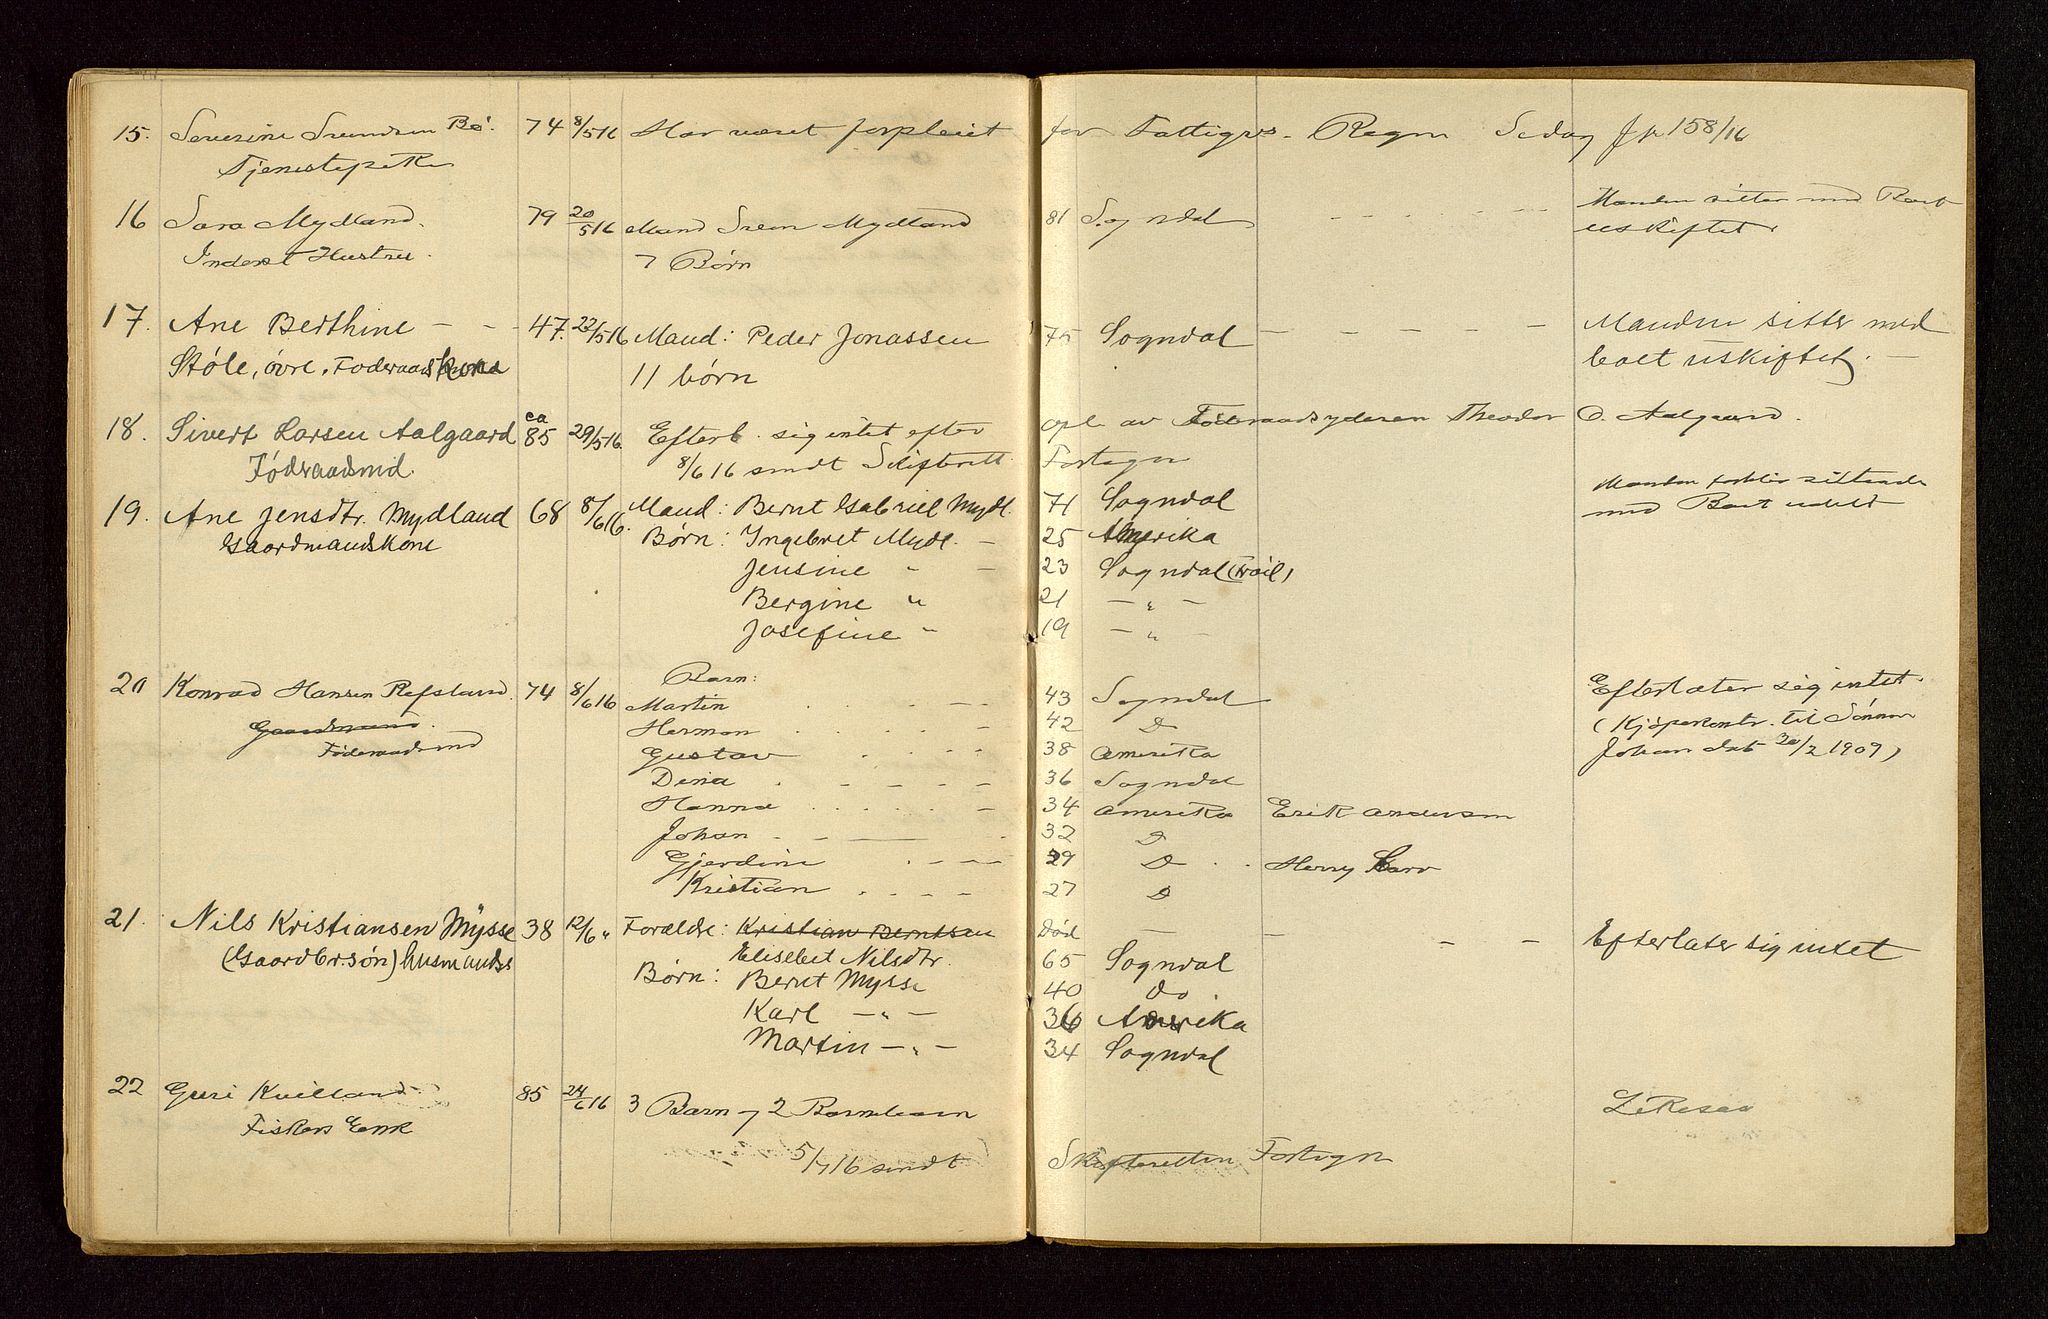 15. Severine Svendsen Bø. 74 8/5 16 Har været forpleiet for Fattigvs. Regn Se dag Jr 158/16
Tjenestepike
16 Sara Mydland. 79 20/5 16 Mand Sven Mydland 81 Sogndal - - - - - - Manden sitter med Boet
Inderst Hustru. 7 Børn uskiftet.
17. Ane Berthine - - 47. 22/5 16 Mand: Peder Jonassen 75 Sogndal - - - - - - Manden sitter med
Støle, øvre. Føderaadskone 11 børn boet uskiftet. -
18. Sivert Larsen Aalgaard ca 85 29/5 16. Efterl. sig intet efter opl. av Føderaadsyderen Theodor O. Aalgaard.
Føderaadsmd. 8/6 16 sendt Skifteret Fortegn
19. Ane Jensdtr. Mydland 68 8/6 16. Mand: Bernt Gabriel Mydl. 71 Sogndal Manden forblir sittende
Gaardmandskone Børn: Ingebret Mydl. - 25 Amerika med Boet udelt
Jensine " - 23 Sogndal (Frøil)
Bergine " 21 - " -
Josefine " 19 - " -
20 Konrad Hansen Refsland. 74 8/6 16 Barn:
Martin . . . - - 43 Sogndal Efterlater sig intet.
Herman . . . . - 42 D (Kjøpekontr. til Sønnen
Gaardmand. Gustav . . . . 38 Amerika Johan dat 30/2 1909)
Føderaadsmd Dina . - - - - 36 Sogndal
Hanna . . . . . - 34 Amerika Erik Andersen
Johan - - - 32 D
Gjerdine . - - - 29 D . . Henry
Kristian . . - - 27 D
21. Nils Kristiansen Mysse 38 12/6 " Forældre: Kristian Berntsen Død - - - - Efterlater sig intet
(Gaardbr.søn) husmands Elisebet Nilsdtr. 65 Sogndal
Børn: Bernt Mysse 40 do.
Karl - " - 36 Amerika
Martin - " - 34 Sogndal
22 Guri Kvilland 85 24/6 16 3 Barn 7 2 Barnebarn
Fiskers Enke
5/7 16 sendt Skifteretten Fortegn